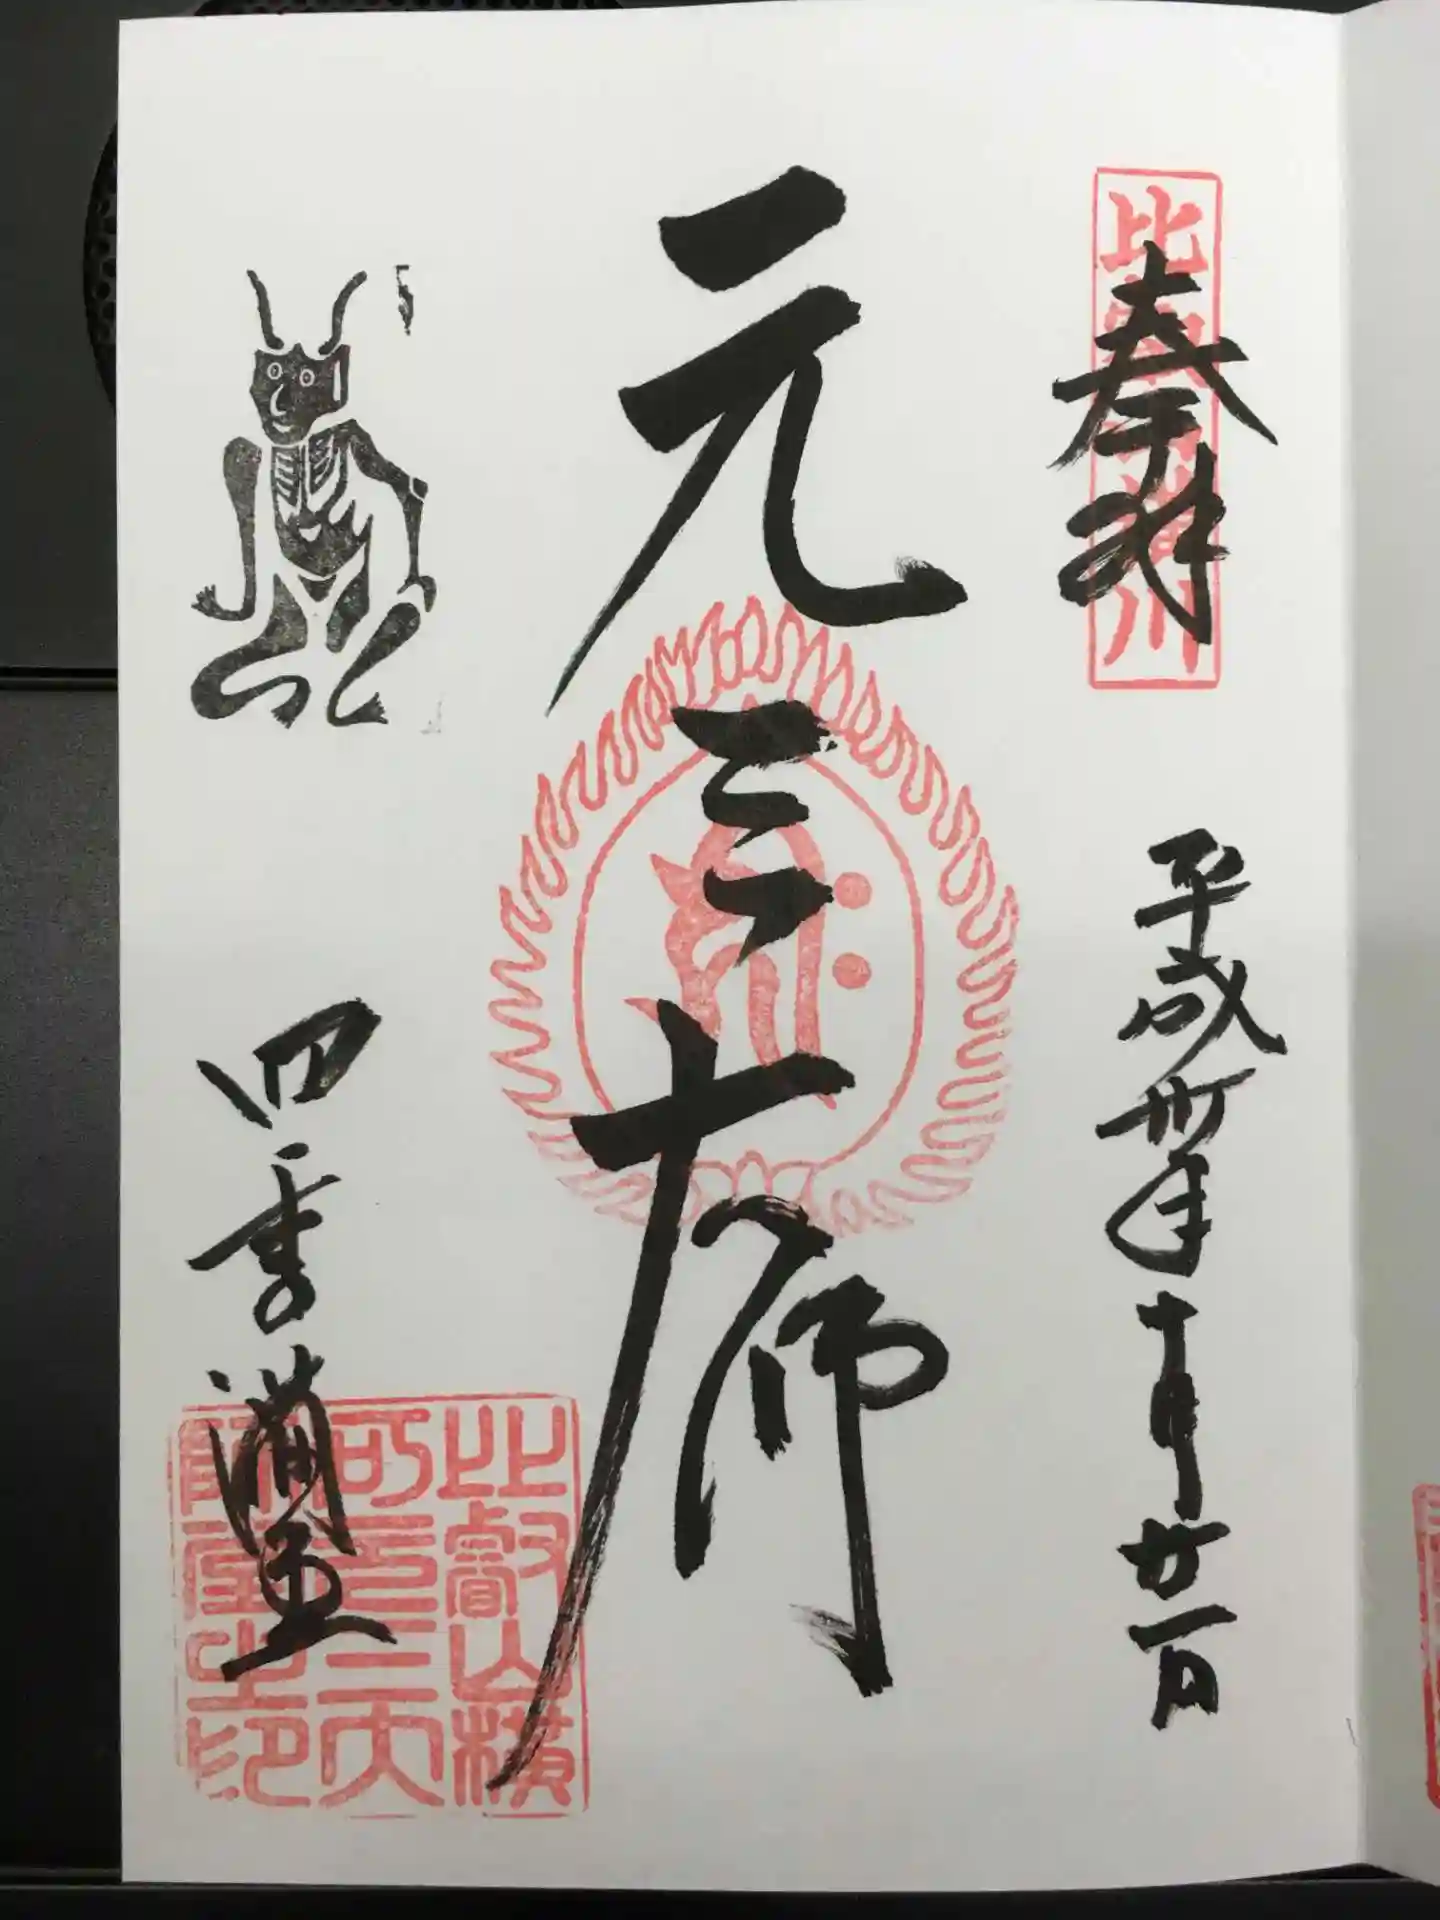 奉拝
比叡山横川
平成卅年十月廿一日
元三大師
四季講堂
比叡山横
河元三大
師堂之印